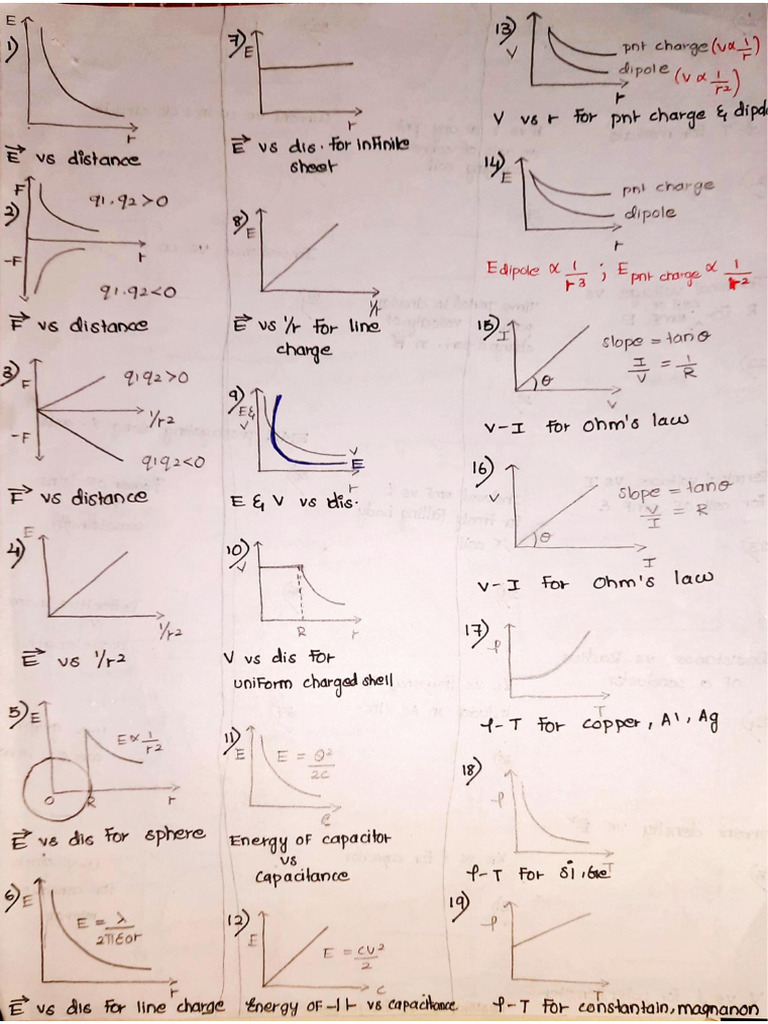 1)
E
r
E vs distance
2)
F
q1.q2>0
r
-F
q1.q2<0
F vs distance
3)
F
q1q2>0
1/r2
-F
q1q2<0
F vs distance
4)
E
1/r2
E vs 1/r2
5)
E
E∝1/r2
O
R
r
E vs dis for sphere
6)
E
E = λ/2πε0r
r
E vs dis for line charge
7)
E
r
E vs dis. for infinite
sheet
8)
E
1/r
E vs 1/r for line
charge
9)
E&
V
V
E
r
E & V vs dis.
10)
V
R
r
V vs dis for
uniform charged shell
11)
E
E = Q²/2C
C
Energy of capacitor
vs
capacitance
12)
E
E = CV²/2
C
Energy of ⊣⊢ vs capacitance
13)
V
pnt charge (V∝1/r)
dipole (V∝1/r2)
r
V vs r for pnt charge & dipole
14)
E
pnt charge
dipole
r
Edipole ∝ 1/r3 ; Epnt charge ∝ 1/r2
15)
I
slope = tanθ
I/V = 1/R
θ
V
V-I for ohm's law
16)
V
slope = tanθ
V/I = R
θ
I
V-I for ohm's law
17)
ρ
T
ρ-T for copper, Al, Ag
18)
ρ
T
ρ-T for Si, Ge
19)
ρ
T
ρ-T for constantain, magnanon